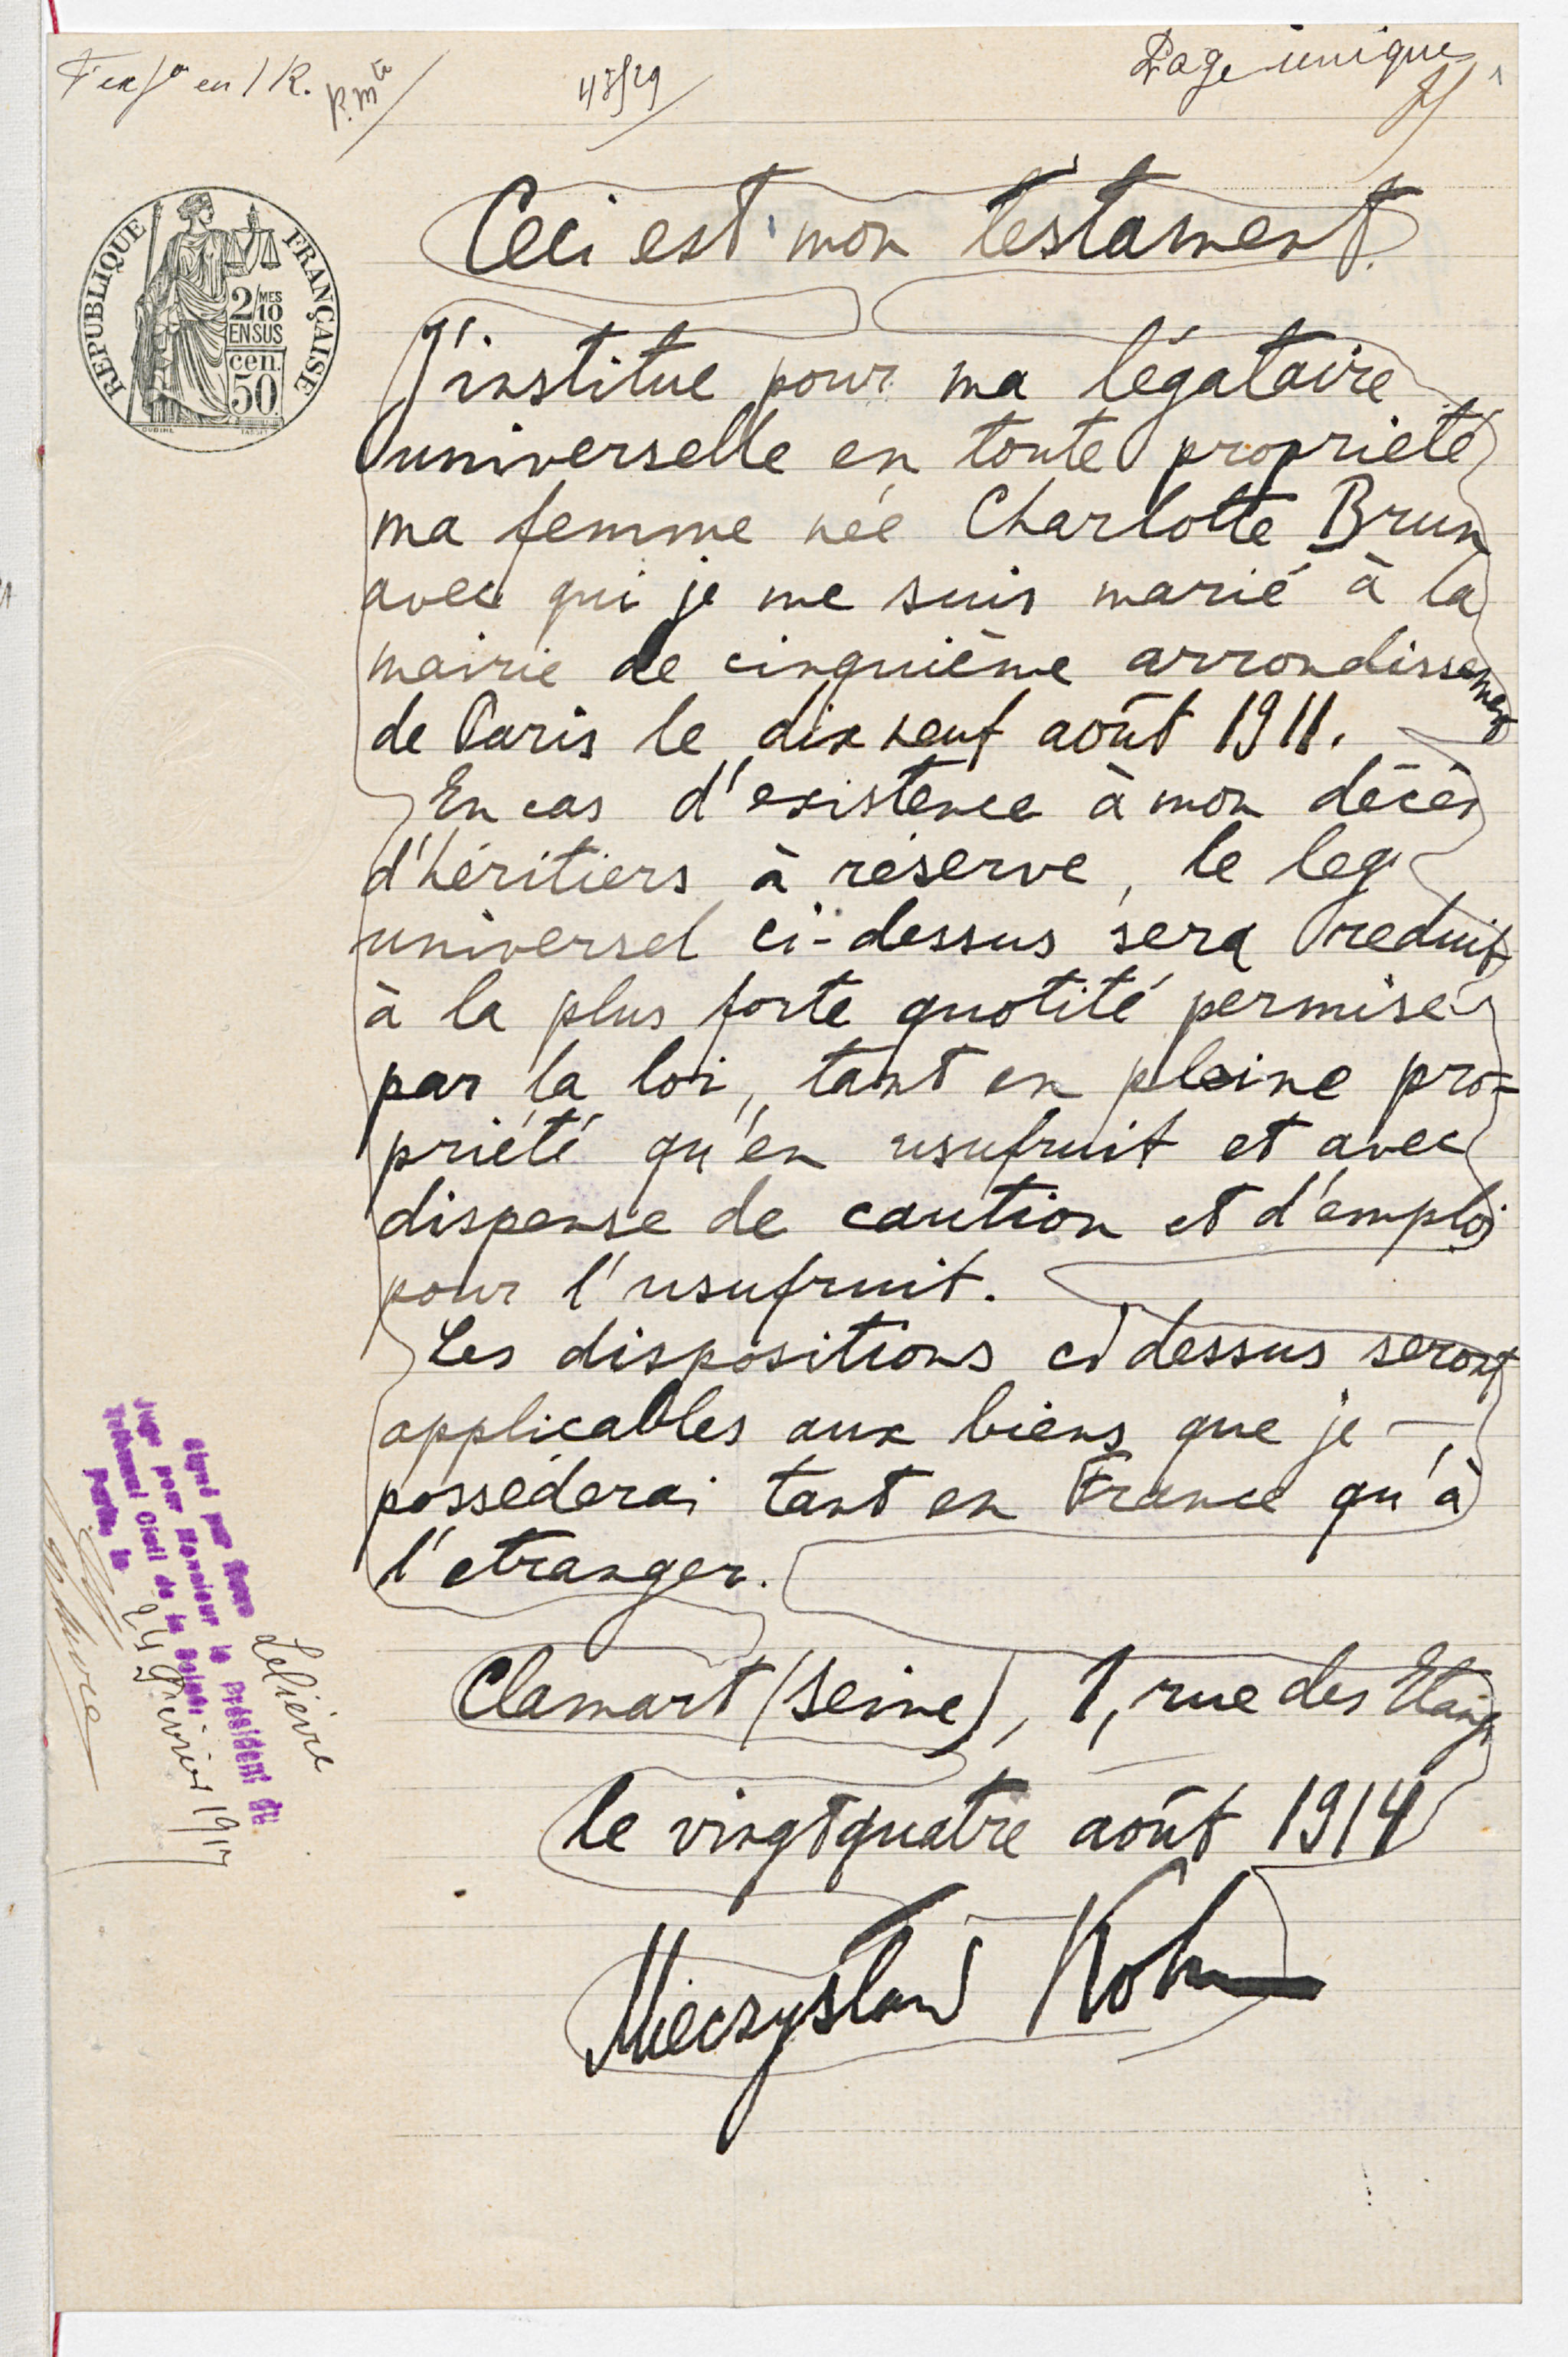 Page unique
Ceci est mon testament.
RÉPUBLIQUE FRANÇAISE
2/MES
10
EN SUS
cen.
50
J'institue pour ma légataire
universelle en toute proprieté
ma femme née Charlotte Brun
avec qui je me suis marié à la
mairie de cinquième arrondissement
de Paris le dix neuf août 1911.
En cas d'existence à mon décès
d'héritiers à réserve, le leg
universel ci-dessus sera reduit
à la plus forte quotité permise
par la loi, tant en pleine pro-
priété qu'en usufruit et avec
dispense de caution et d'emploi
pour l'usufruit.
Les dispositions ci dessus seront
applicables aux biens que je —
posséderai tant en France qu'à
l'etranger.
Clamart (Seine), 1, rue des Etangs
le vingt quatre août 1914
Mieczyslaw Kohn
signé par Nous Lelievre
Juge pour Monsieur le Président du
Tribunal Civil de la Seine
24 Février 1917
Lelievre